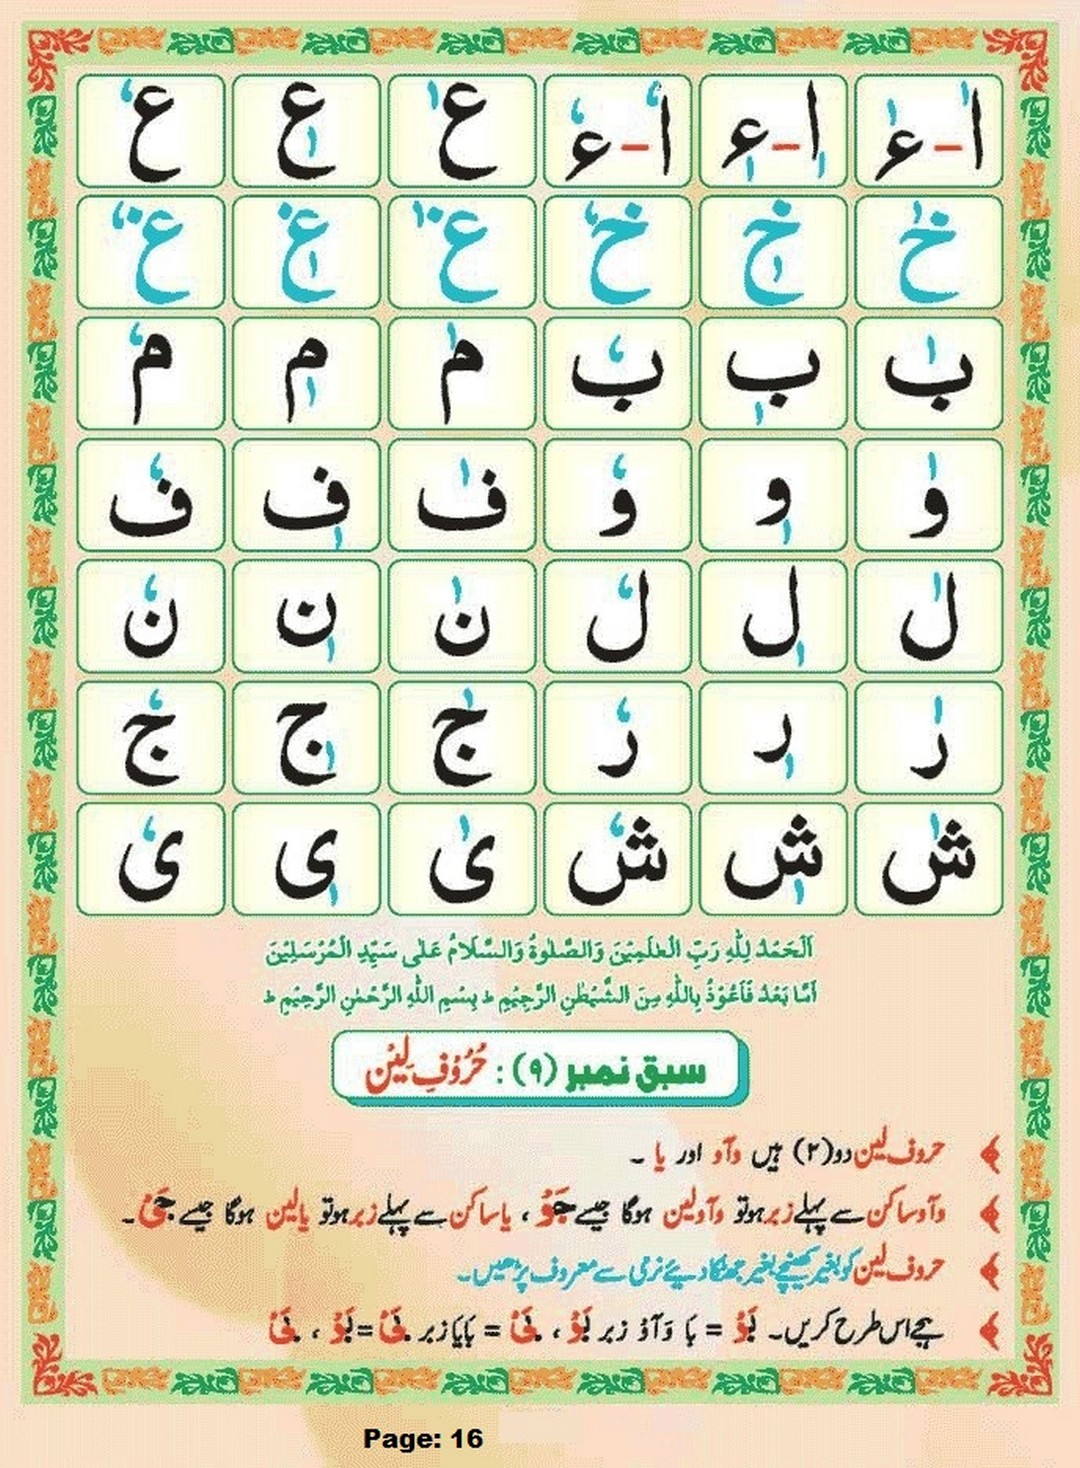 اٰ-ءٰ اٖ-ءٖ اٗ-ءٗ عٰ عٖ عٗ
خٰ خٖ خٗ غٰ غٖ غٗ
بٰ بٖ بٗ مٰ مٖ مٗ
وٰ وٖ وٗ فٰ فٖ فٗ
لٰ لٖ لٗ نٰ نٖ نٗ
رٰ رٖ رٗ جٰ جٖ جٗ
شٰ شٖ شٗ یٰ یٖ یٗ
اَلْحَمْدُ لِلّٰهِ رَبِّ الْعٰلَمِيْنَ وَالصَّلٰوةُ وَالسَّلَامُ عَلٰى سَيِّدِ الْمُرْسَلِيْنَ
اَمَّا بَعْدُ فَاَعُوْذُ بِاللّٰهِ مِنَ الشَّيْطٰنِ الرَّجِيْمِ ط بِسْمِ اللّٰهِ الرَّحْمٰنِ الرَّحِيْمِ ط
سبق نمبر (۹) : حُرُوْفِ لِیْن
حروف لین دو (۲) ہیں واؤ اور یا ۔
واؤ ساکن سے پہلے زبر ہو تو واؤ لین ہوگا جیسے جَوْ ، یا ساکن سے پہلے زبر ہو تو یا لین ہوگا جیسے جَیْ ۔
حروف لین کو بغیر کھینچے بغیر جھٹکا دیئے نرمی سے معروف پڑھیں ۔
ہجے اس طرح کریں ۔ بَوْ = بَا وَآوْ زبر بَوْ ، بَیْ = بَا یَا زبر بَیْ = بَوْ ، بَیْ
Page: 16